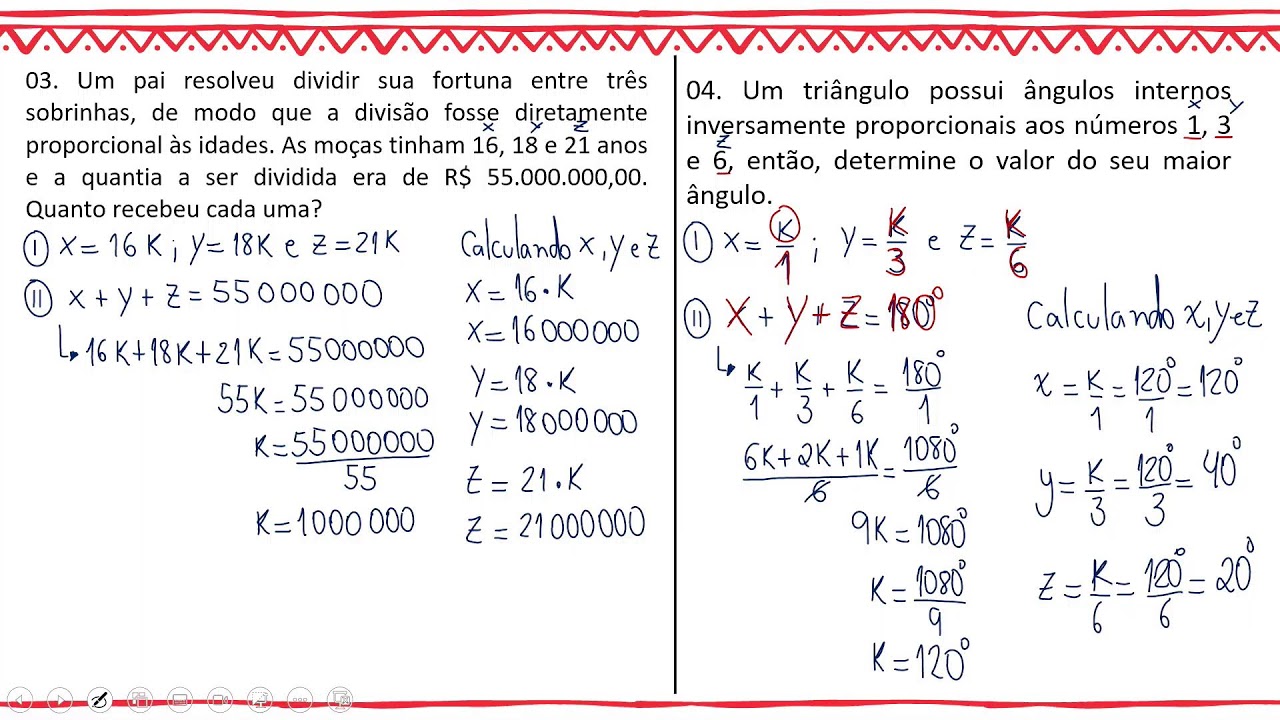 03. Um pai resolveu dividir sua fortuna entre três
sobrinhas, de modo que a divisão fosse diretamente
x y z
proporcional às idades. As moças tinham 16, 18 e 21 anos
e a quantia a ser dividida era de R$ 55.000.000,00.
Quanto recebeu cada uma?
I x = 16K ; y = 18K e z = 21K
II x + y + z = 55000000
↳ 16K + 18K + 21K = 55000000
55K = 55000000
K = 55000000
55
K = 1000000
Calculando x, y e z
x = 16 · K
x = 16000000
y = 18 · K
y = 18000000
z = 21 · K
z = 21000000
04. Um triângulo possui ângulos internos
x y
inversamente proporcionais aos números 1, 3
z
e 6, então, determine o valor do seu maior
ângulo.
I x = K/1 ; y = K/3 e z = K/6
II x + y + z = 180°
↳ K/1 + K/3 + K/6 = 180°/1
6K + 2K + 1K/6 = 1080°/6
9K = 1080°
K = 1080°/9
K = 120°
Calculando x, y e z
x = K/1 = 120°/1 = 120°
y = K/3 = 120°/3 = 40°
z = K/6 = 120°/6 = 20°